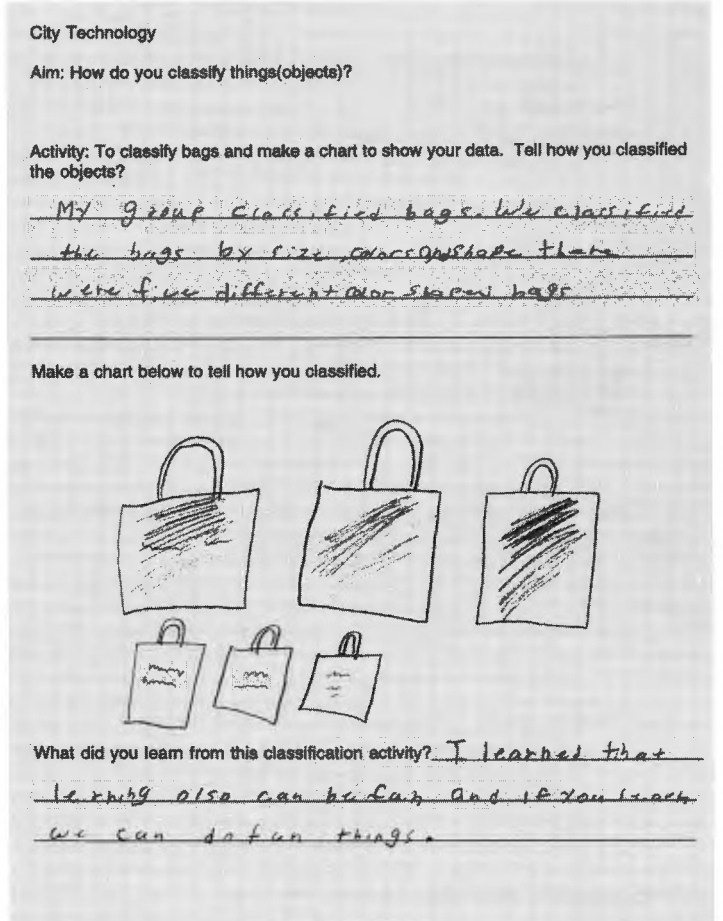 City Technology
Aim: How do you classify things(objects)?
Activity: To classify bags and make a chart to show your data. Tell how you classified
the objects?
My group classified bags. We classified
the bags by size, colors and shape there
were five different color shaped bags
Make a chart below to tell how you classified.
What did you learn from this classification activity? I learned that
lerning also can be fun and if you
we can do fun things.